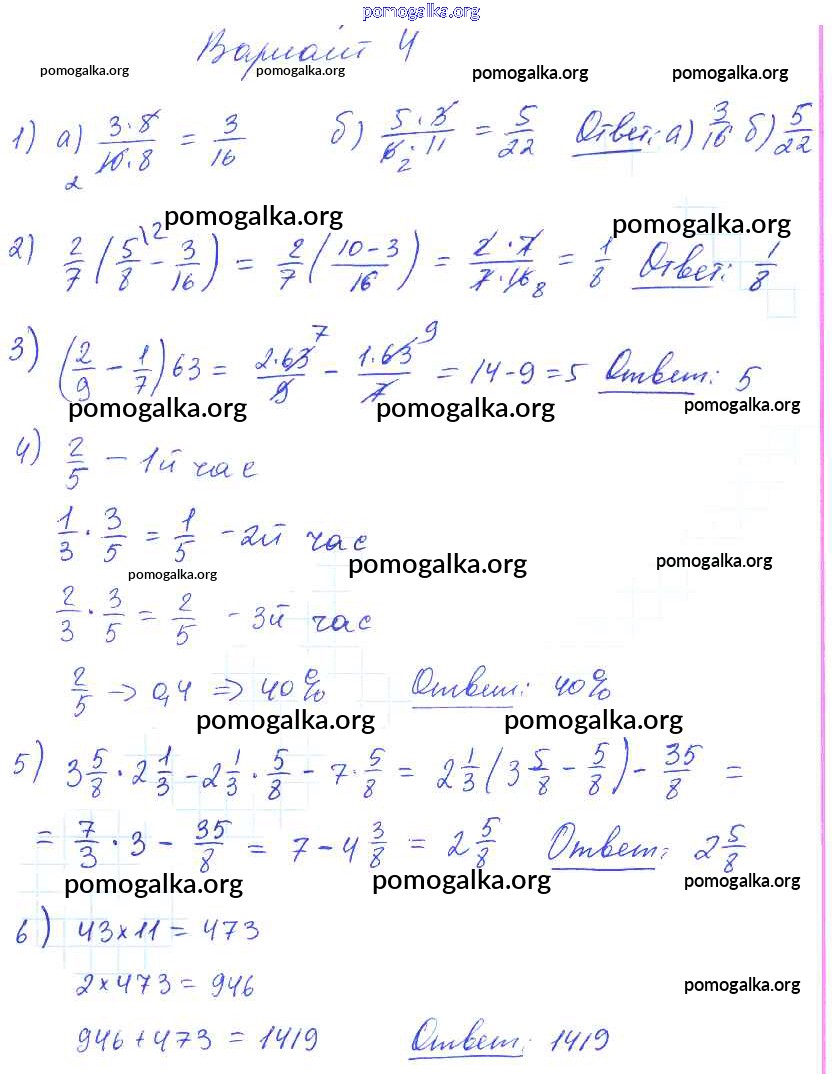 pomogalka.org
Вариант 4
pomogalka.org pomogalka.org pomogalka.org pomogalka.org
1) а) 3·8/16·8 = 3/16 б) 5·3/6·11 = 5/22 Ответ: а) 3/16 б) 5/22
2 2
pomogalka.org pomogalka.org
2) 2/7 (5/8 \2 − 3/16) = 2/7 (10−3/16) = 2·7/7·16 8 = 1/8 Ответ: 1/8
3) (2/9 − 1/7) 63 = 2·63 7/9 − 1·63 9/7 = 14−9 = 5 Ответ: 5
pomogalka.org pomogalka.org pomogalka.org
4) 2/5 − 1й час
1/3 · 3/5 = 1/5 − 2й час
pomogalka.org pomogalka.org
pomogalka.org
2/3 · 3/5 = 2/5 − 3й час
2/5 → 0,4 ⇒ 40% Ответ: 40%
pomogalka.org pomogalka.org
5) 3 5/8 · 2 1/3 − 2 1/3 · 5/8 − 7 · 5/8 = 2 1/3 (3 5/8 − 5/8) − 35/8 =
= 7/3 · 3 − 35/8 = 7 − 4 3/8 = 2 5/8 Ответ: 2 5/8
pomogalka.org pomogalka.org pomogalka.org
6) 43×11 = 473
2×473 = 946
pomogalka.org
946+473 = 1419 Ответ: 1419